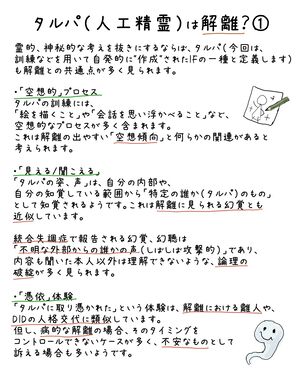 タルパ(人工精霊)は解離?①
霊的、神秘的な考えを抜きにするならば、タルパ(今回は、
訓練などを用いて自発的に"作成"されたIFの一種と定義します)
も解離との共通点が多く見られます。
・「空想的」プロセス
タルパの訓練には、
「絵を描くこと」や「会話を思い浮かべること」など、
空想的なプロセスが多く含まれます。
これは解離の出やすい「空想傾向」と何らかの関連があると
考えられます。
・「見える/聞こえる」
「タルパの姿、声」は、自分の内部や、
自分の知覚している範囲から「特定の誰か(タルパ)のもの」
として知覚されるようです。これは解離に見られる幻覚とも
近似しています。
統合失調症で報告される幻覚、幻聴は
「不明な外部からの誰かの声(しばしば攻撃的)」であり、
内容も聞いた本人以外は理解できないような、論理の
破綻が多く見られます。
・「憑依」体験
「タルパに取り憑かれた」という体験は、解離における離人や、
DIDの人格交代に類似しています。
但し、病的な解離の場合、そのタイミングを
コントロールできないケースが多く、不安なものとして
訴える場合も多いようです。